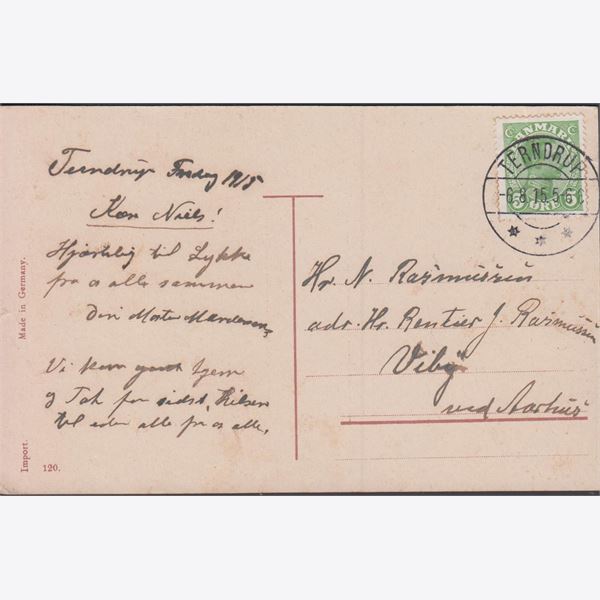 Terndrup Fredag 1915
Kære Niels!
Hjærtelig til Lykke
fra os alle sammen
Din Moster
Vi kom godt hjem
og Tak for sidst, Hilsen
til eder alle fra os alle,
Hr. N. Rasmussen
adr. Hr. Rentier J. Rasmussen
Viby
ved Aarhus
DANMARK
5 ØRE 5
TERNDRUP
-6.8.15. 5-6
Made in Germany.
Import.
120.